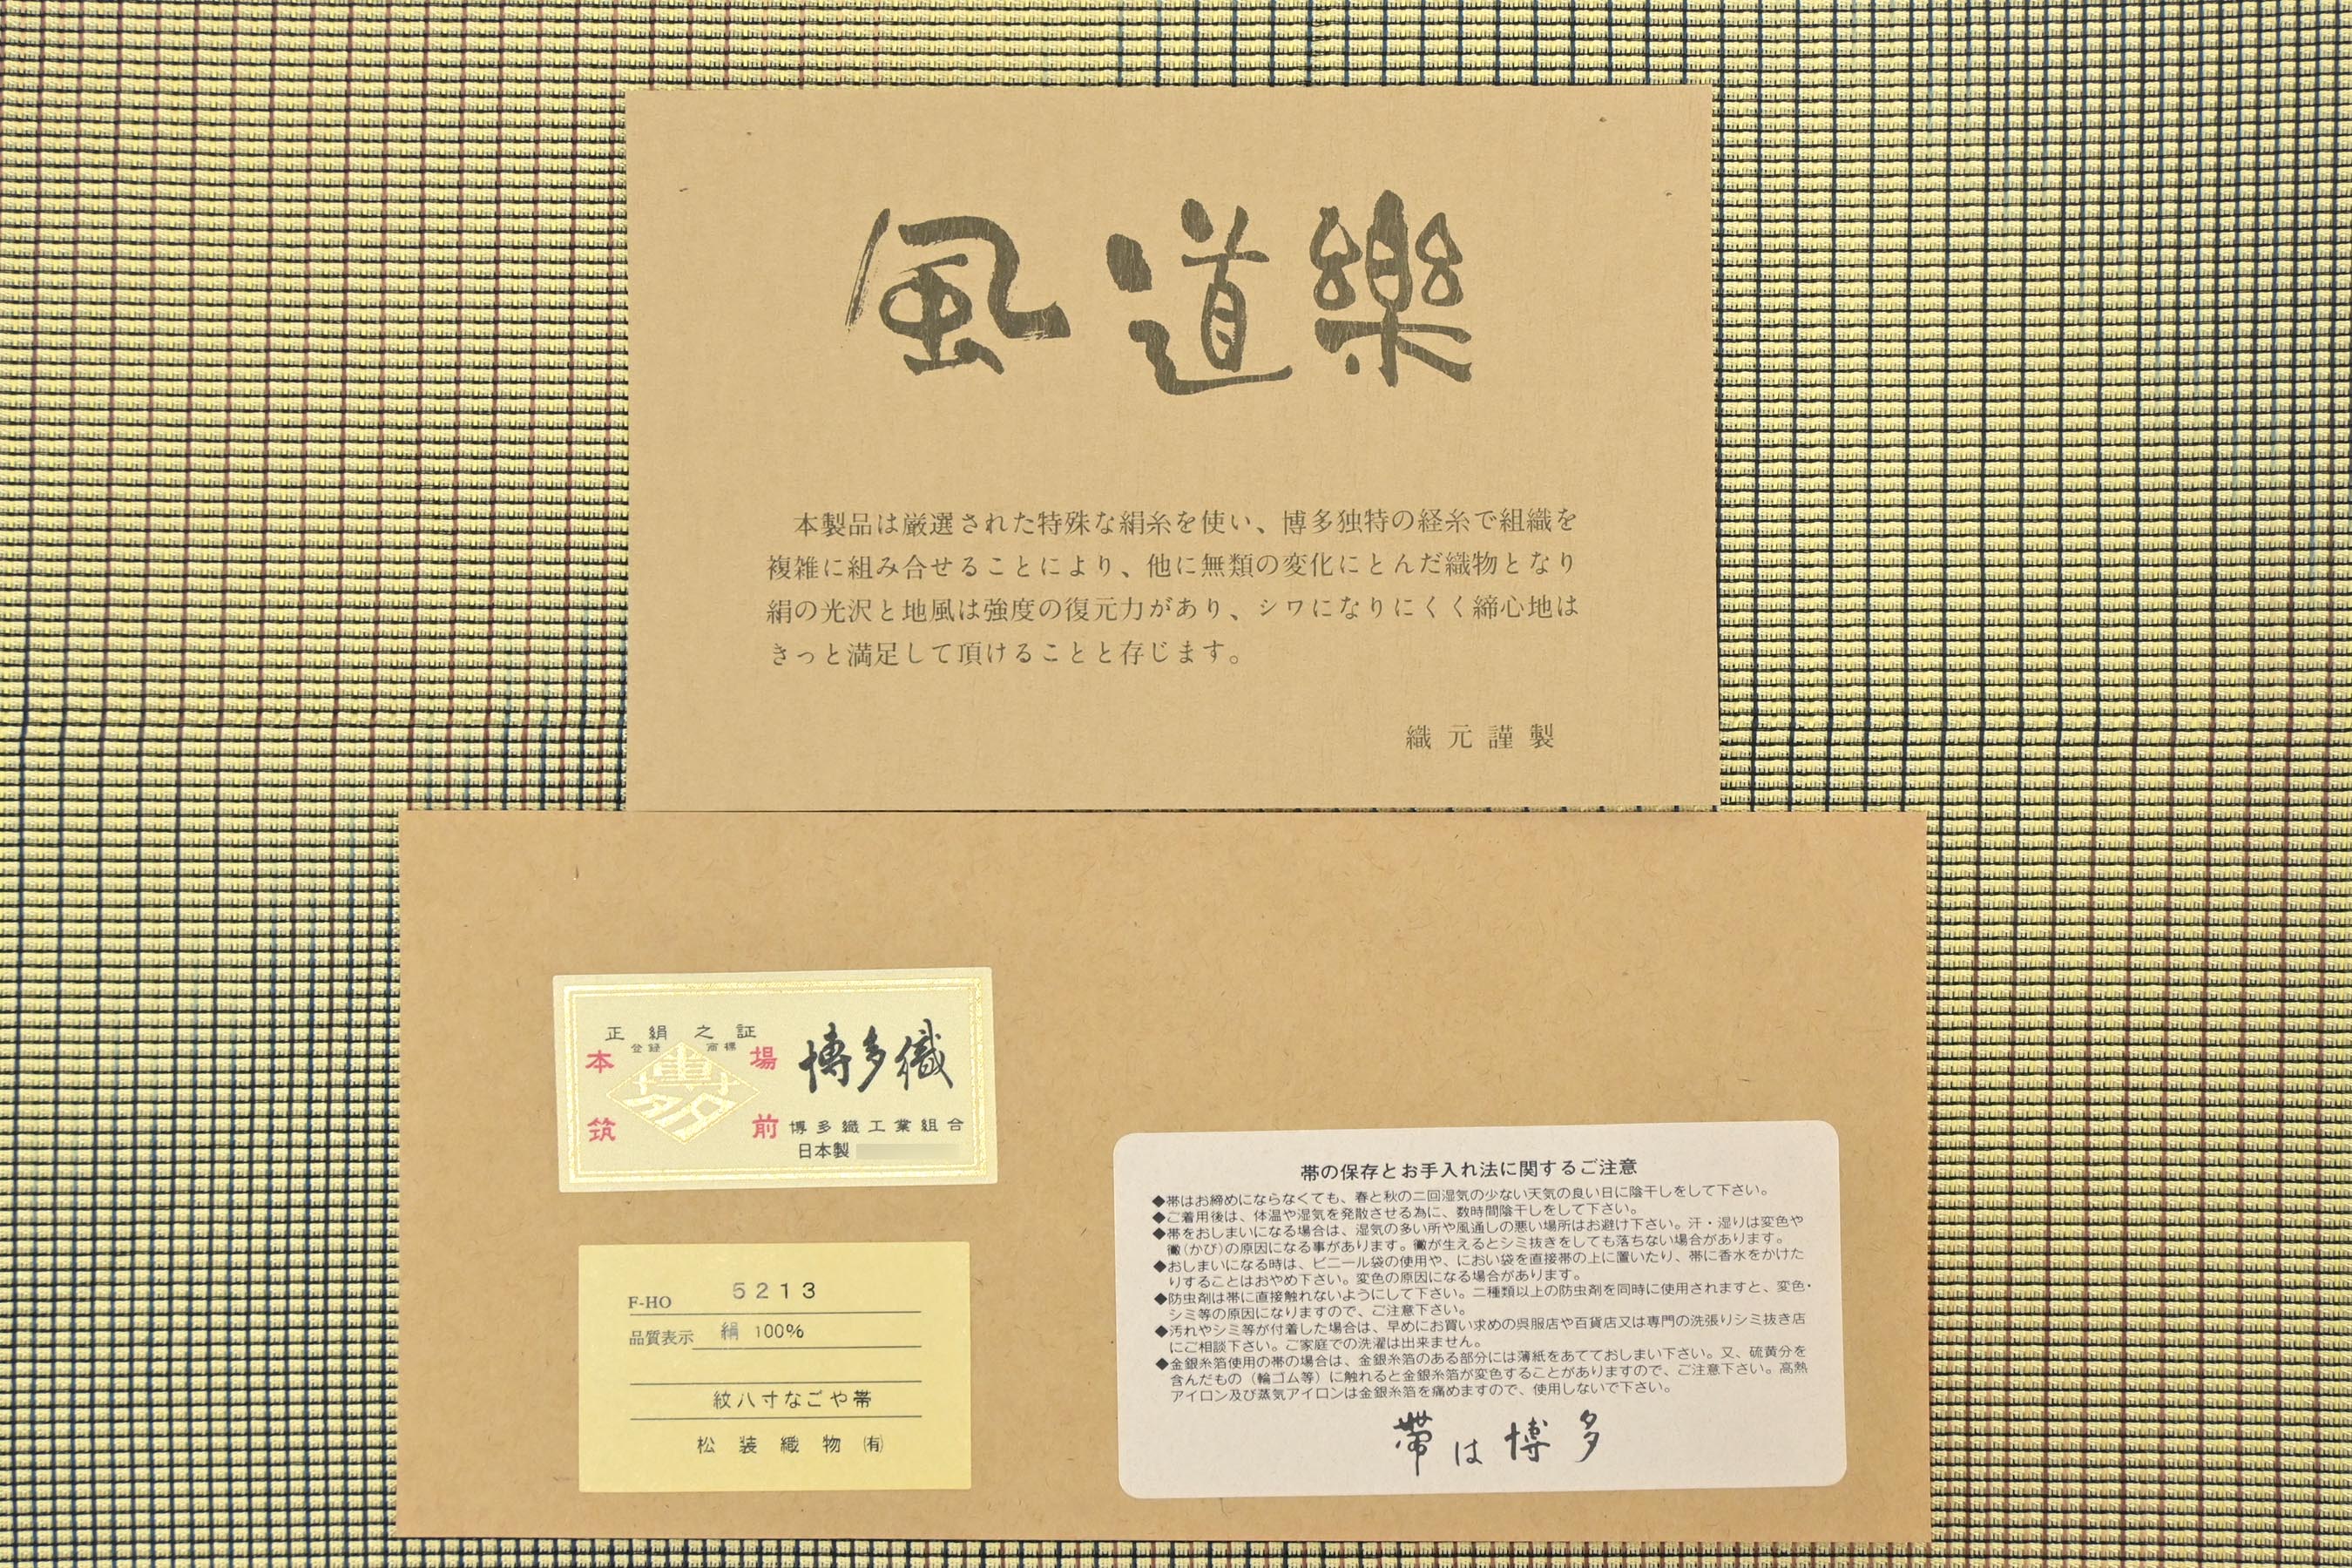 風道樂
本製品は厳選された特殊な絹糸を使い、博多独特の経糸で組織を
複雑に組み合せることにより、他に無類の変化にとんだ織物となり
絹の光沢と地風は強度の復元力があり、シワになりにくく締心地は
きっと満足して頂けることと存じます。
織元謹製
正絹之証
登録 商標
本場
筑前
博多
博多織
博多織工業組合
日本製
F-HO 5213
品質表示 絹 100%
紋八寸なごや帯
松装織物㈲
帯の保存とお手入れ法に関するご注意
◆帯はお締めにならなくても、春と秋の二回湿気の少ない天気の良い日に陰干しをして下さい。
◆ご着用後は、体温や湿気を発散させる為に、数時間陰干しをして下さい。
◆帯をおしまいになる場合は、湿気の多い所や風通しの悪い場所はお避け下さい。汗・湿りは変色や
黴(かび)の原因になる事があります。黴が生えるとシミ抜きをしても落ちない場合があります。
◆おしまいになる時は、ビニール袋の使用や、におい袋を直接帯の上に置いたり、帯に香水をかけた
りすることはおやめ下さい。変色の原因になる場合があります。
◆防虫剤は帯に直接触れないようにして下さい。二種類以上の防虫剤を同時に使用されますと、変色・
シミ等の原因になりますので、ご注意下さい。
◆汚れやシミ等が付着した場合は、早めにお買い求めの呉服店や百貨店又は専門の洗張りシミ抜き店
にご相談下さい。ご家庭での洗濯は出来ません。
◆金銀糸箔使用の帯の場合は、金銀糸箔のある部分には薄紙をあてておしまい下さい。又、硫黄分を
含んだもの（輪ゴム等）に触れると金銀糸箔が変色することがありますので、ご注意下さい。高熱
アイロン及び蒸気アイロンは金銀糸箔を痛めますので、使用しないで下さい。
帯は博多